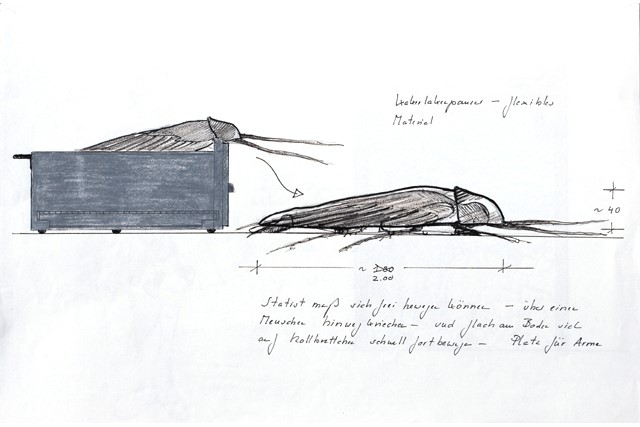 Kakerlakenpanzer – flexibles
Material
~ 40
~ 180
2.00
Statist muß sich frei bewegen können – über einen
Menschen hinweg kriechen – und flach am Boden sich
auf Rollbrettchen schnell fortbewegen – Platz für Arme